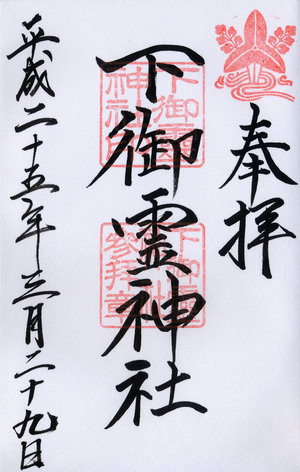 奉拝
下御霊神社
平成二十五年三月二十九日
下御霊神社印
下御霊社参拝章